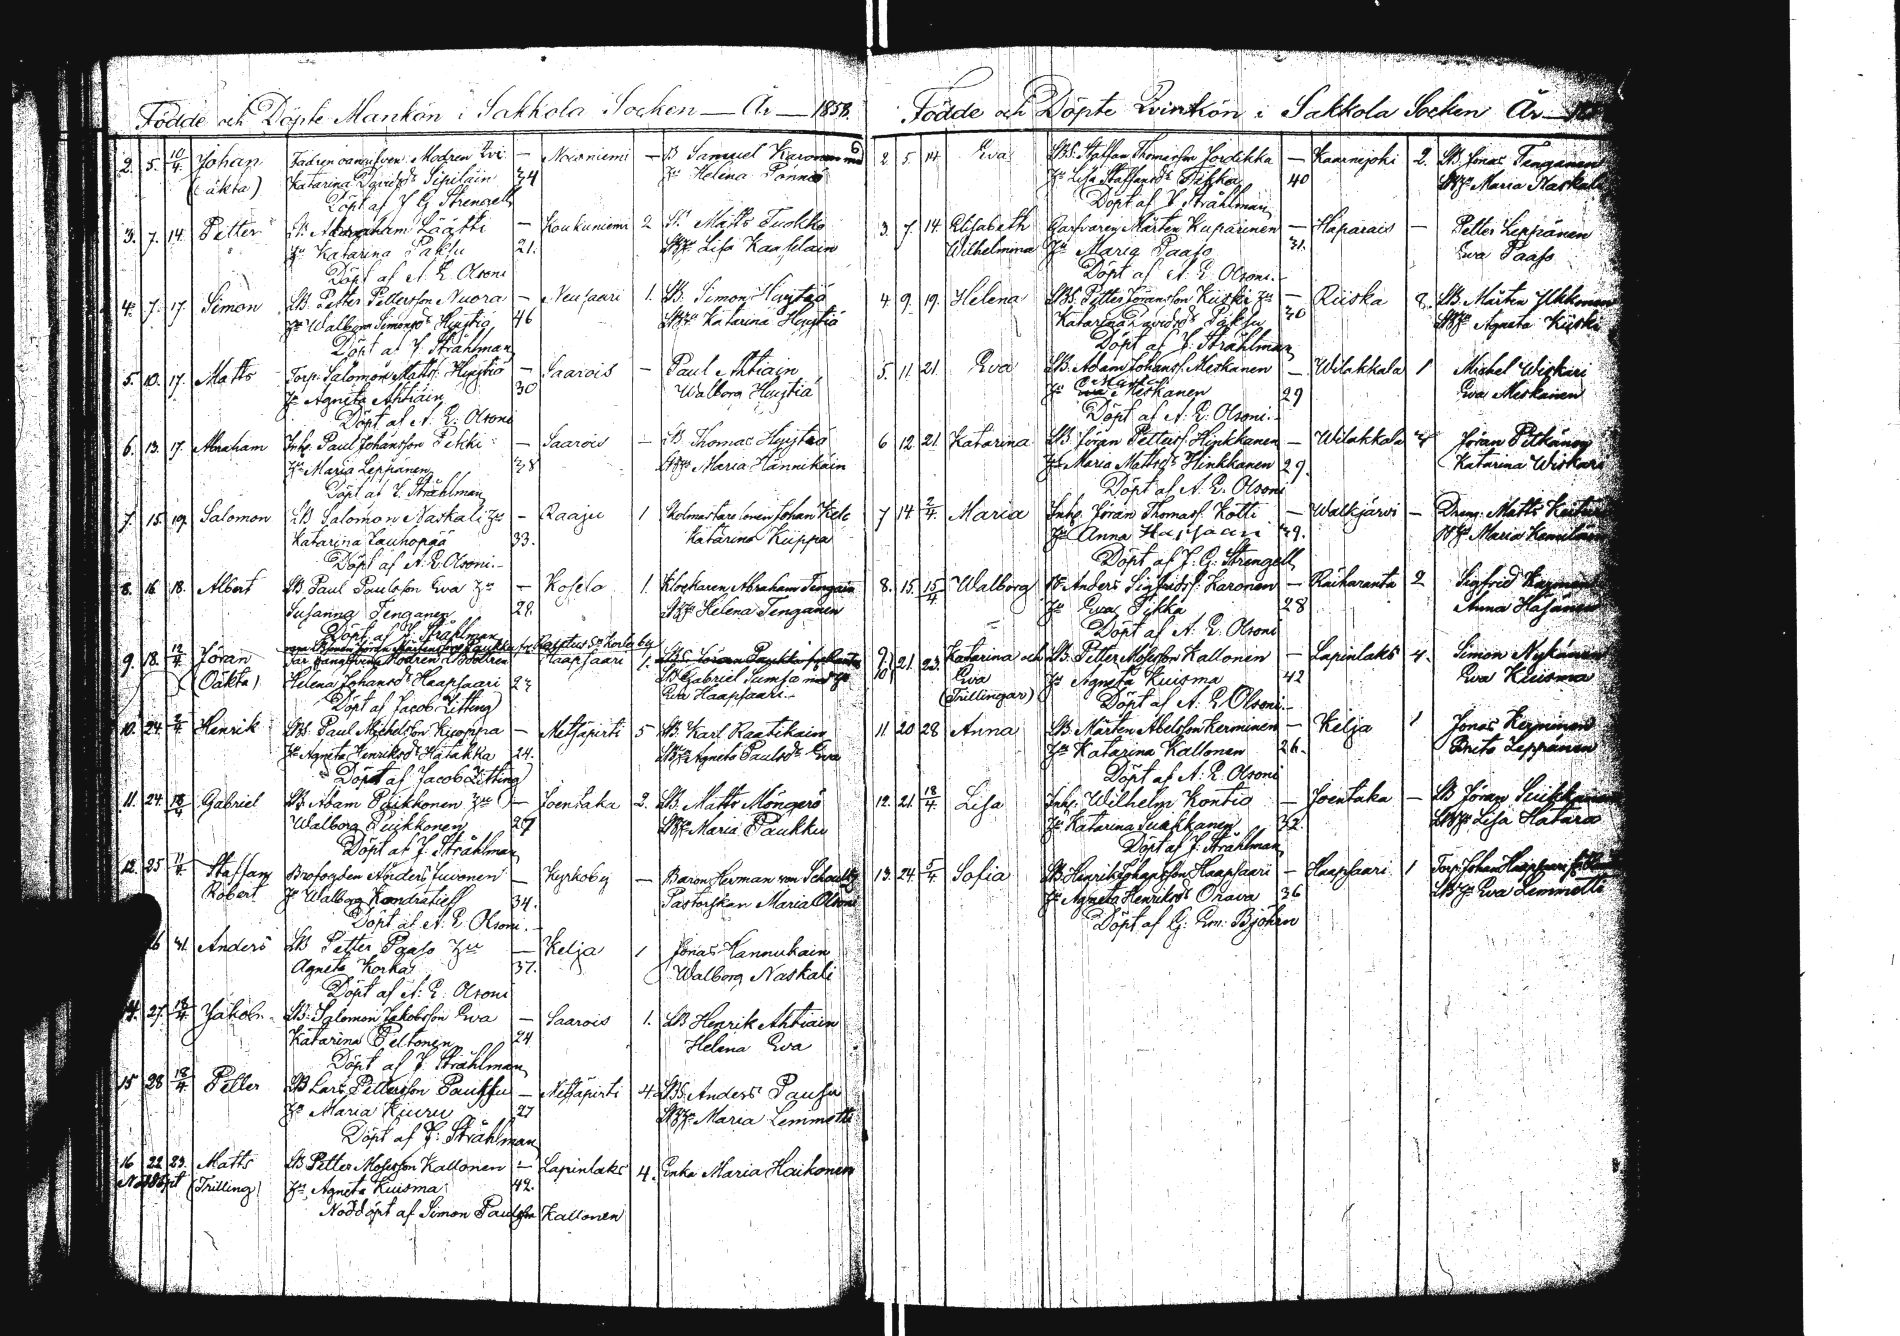 Födde och Döpte Mankön i Sakkola Socken — År — 1858.
2. 5. 10/4 Johan Fadren oansifven. Modren Evi — Nousniemi — B Samuel Karonen med
(oäkta) Katarina Davidsdr Sipiläin 34 Hu Helena Ponnio
Döpt af J G Strengell
3. 7. 14. Petter Abraham Läätti — Koukuniemi 2 Matts Tuokko
Hu Katarina Paksu 21. Lisa Kantelain
Döpt af A. E. Olsoni
4. 7. 17. Simon LB. Petter Pettersson Nuora — Neusaari 1. LB. Simon Hyytiö
Hu Walborg Simonsdr Hyytiö 46 Katarina Hyytiö
Döpt af J. Stråhlman
5. 10. 17. Matts Torp. Salomon Mattss. Hyytiö — Saarois — Paul Ahtiain
Hu Agneta Ahtiain 30 Walborg Hyytiä
Döpt af A. E. Olsoni
6. 13. 17. Abraham Inh. Paul Johansson Pekki — Saarois — LB. Thomas Hyytiö
Hu Maria Leppänen 38 Maria Hannikain
Döpt af J. Stråhlman
7. 15. 19. Salomon LB Salomon Naskali Hu — Raaju 1 Skolmästare Johan
Katarina Lauhopää 33. Katarina Kuppa
Döpt af A. E. Olsoni.
8. 16 18. Albert LB. Paul Paulsson Eva Hu — Kosela 1. Klockaren Abraham Tenganen
Susanna Tenganen 28. Helena Tenganen
Döpt af J. Stråhlman
9. 18. 12/4 Jöran Modren Haapsaari 1.
(Oäkta) Helena Johansdr Haapsaari 23 Gabriel Sumsa med Hu
Döpt af Jacob Zitting Eva Haapsaari
10. 24. 2/4 Henrik LBS. Paul Michelsson Kuoppa — Metsäpirti 5 LB. Karl Raatikain
Hu Agneta Henriksdr Hatakka 24. Agneta Paulsdr Eva
Döpt af Jacob Zitting
11. 24. 18/4 Gabriel LB. Adam Puikkonen Hu — Joentaka 2. LB. Matts Möngerö
Walborg Puikkonen 27 Maria Paukku
Döpt af J. Stråhlman
12. 25 11/4 Staffan Brofogden Anders Juvonen — Kyrkoby — Baron Herman von Schoultz
Robert Hu Walborg Kondratieff 34. Pastorskan Maria Olsoni
Döpt af A. E. Olsoni.
26 31. Anders LB Petter Paaso Hu — Kelja 1 Jonas Hannukain
Agneta Korkas 37. Walborg Naskali
Döpt af A. E. Olsoni
14. 27. 18/4 Jakob LB. Salomon Jakobsson Eva — Saarois 1. LB Henrik Ahtiain
Katarina Peltonen 24 Helena Eva
Döpt af J. Stråhlman
15 28 18/4 Petter LB Lars Pettersson Paussu — Metsäpirti 4. LBS. Anders Pausu
Hu Maria Kuuru 27 Maria Lemmetti
Döpt af J. Stråhlman
16 22 23. Matts LB Petter Mosesson Kallonen — Lapinlaks 4. Enka Maria Haikonen
Nöddöpt (Trilling) Hu Agneta Kuisma 42.
Nöddöpt af Simon Paulsson Kallonen
Födde och Döpte Qvinkön i Sakkola Socken År —
2 5 14 Eva LBS. Staffan Thomasson Jordikka — Kaarnijoki 2. LB. Jonas Tenganen
Hu Lisa Staffansdr 40 Maria Naskali
Döpt af J. Stråhlman
3. 7. 14 Elisabeth Garfvaren Mårten Kuparinen — Haparais — Petter Leppänen
Wilhelmina Hu Maria Paaso 31. Eva Paaso
Döpt af A. E. Olsoni.
4 9. 19. Helena LBS. Petter Jöransson Kiiski Hu — Riiska 8. LB. Mårten Ukkonen
Katarina Davidsdr Paksu 30 Agneta Kiiski
Döpt af J. Stråhlman
5. 11 21 Eva LB. Adam Johanss. Meskanen — Wilakkala 1 Michel Wiskari
Hu Meskanen 29 Eva Meskainen
Döpt af A. E. Olsoni.
6 12. 21. Katarina LB. Jöran Petterss. Hinkkanen — Wilakkala 4 Jöran Pitkänen
Hu Maria Mattsdr Hinkkanen 29. Katarina Wiskari
Döpt af A. E. Olsoni
7 14 2/4. Maria Inh. Jöran Thomass. Kotti — Walkjärvi — Dreng. Matts
Hu Anna 39. Maria
Döpt af J. G. Strengell
8. 15. 15/4 Walborg Anders Sigfridss. Karonen — Raikaranta 2 Sigfrid
Hu Eva Pikka 28 Anna
Döpt af A. E. Olsoni
9. 10 21. 23 Katarina och LB. Petter Mosesson Kallonen — Lapinlaks 4. Simon
Eva Hu Agneta Kuisma 42 Eva Kuisma
(Trillingar) Döpt af A. E. Olsoni.
11 20 28 Anna LB. Mårten Abelsson Kerminen — Kelja 1 Jonas Kerminen
Hu Katarina Kallonen 26. Brita Leppänen
Döpt af A. E. Olsoni
12. 21 18/4 Lisa Inh. Wilhelm Kontio — Joentaka — LB Jöran
Hu Katarina Suikkanen 32. Lisa Hatara
Döpt af J. Stråhlman
13. 24 5/4 Sofia LB. Henrik Haapsaari — Haapsaari 1 Torp. Johan Haapsaari
Hu Agneta Henriksdr Orava 36 Eva Lemmetti
Döpt af G. Em. Björken